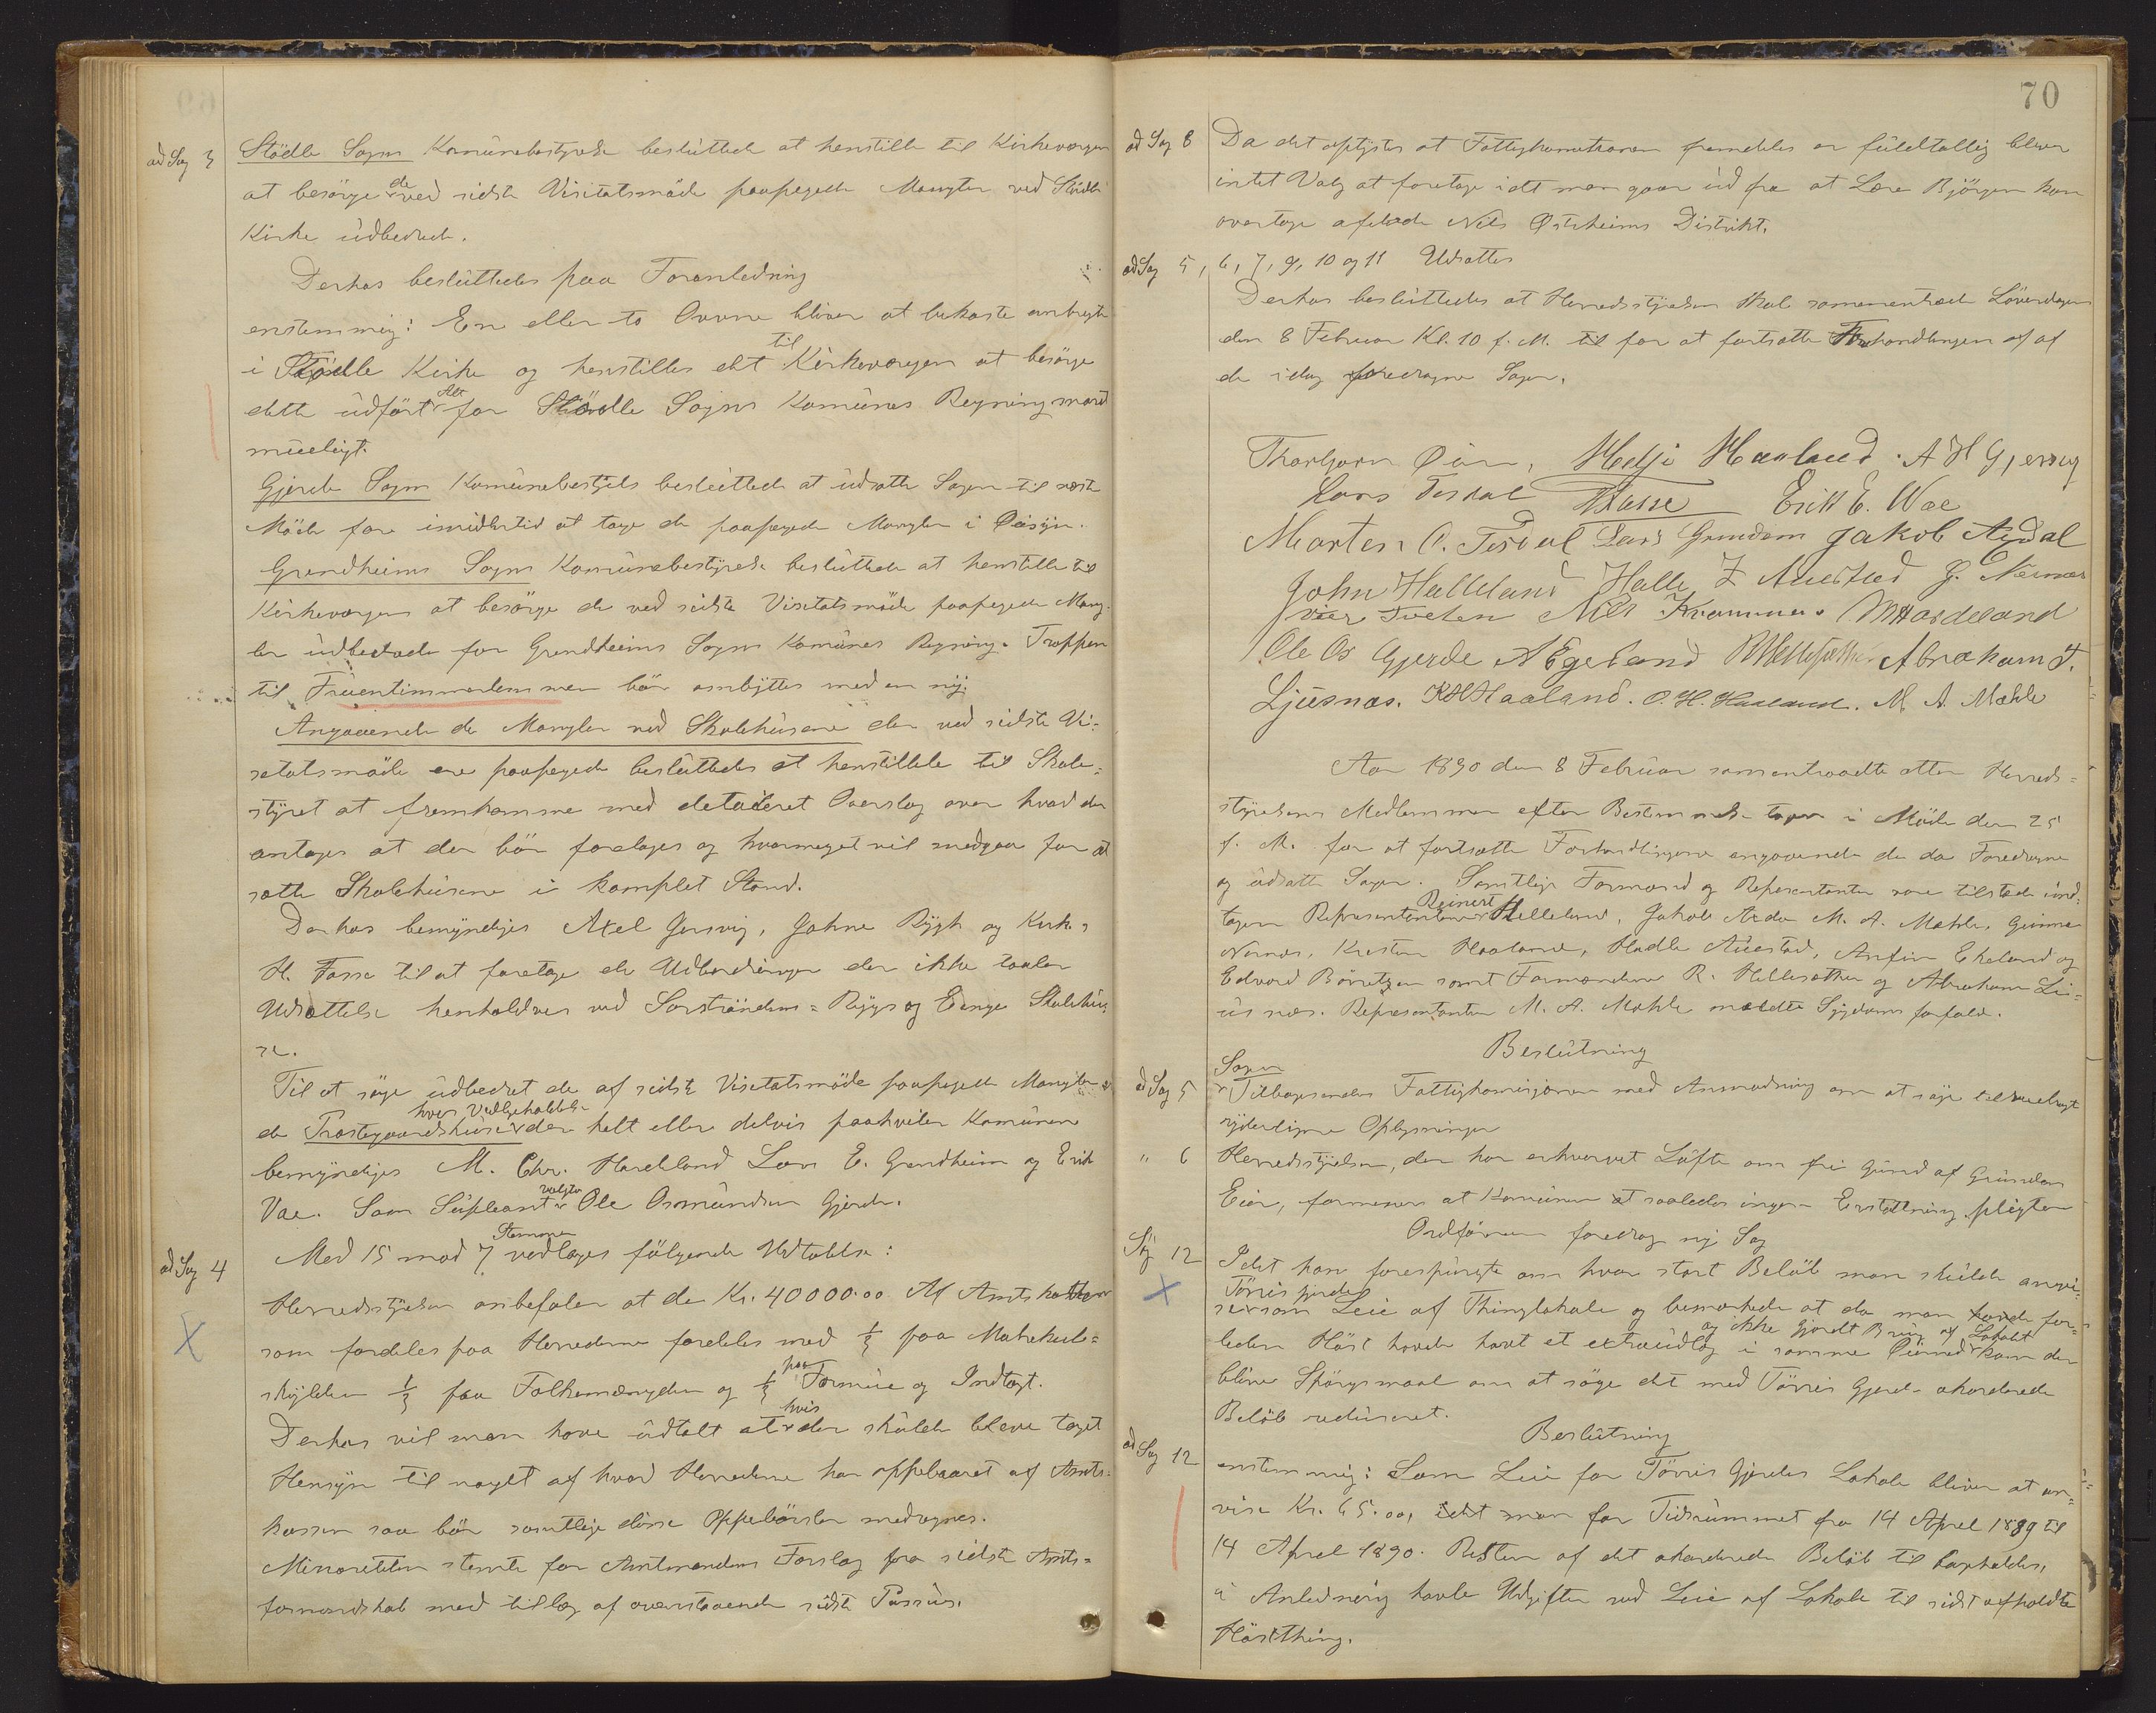 ad Sag 3 Stödle Sogns Komünebestyrelse beslüttede at henstille til Kirkevergen
at besörge de ved sidste Visitatsmöde paapegede Mangler ved Stödle
Kirke üdbedret.
Derhos beslüttedes paa Foranledning
enstemmig: En eller to Ovne bliver at bekoste anbragte
i Stödle Kirke og henstilles det til Kirkevergen at besörge
dette üdfört Alt for Stödle Sogns Komünes Regning snarest
mueligt.
Gjerde Sogns Komünebestyrelse beslüttede at üdsætte Sagen til næste
Möde for imidlertid at tage de paapegede Mangler i Öiesyn.
Grendheims Sogns Komünebestyrelse beslüttede at henstille til
Kirkevergen at besörge de ved sidste Visitatsmöde paapegede Mang-
ler üdbedrede for Grendheims Sogns Komünes Regning. Trappen
til Früentimmerlemmen bör ombyttes med en ny.
Angaaende de Mangler ved Skolehüsene der ved sidste Vi-
setatsmöde ere paapegede beslüttedes at henstille til Skole-
styret at fremkomme med detaileret Overslag over hvad der
antages at der bör foretages og hvormeget vil medgaa for at
sætte Skolehüsene i komplet Stand.
Derhos bemyndiges Axel Gjersvig, Johne Rygh og Kirkes.
H. Fosse til at foretage de Udbedringer der ikke taaler
Udsættelse henholdsvis ved Sorströndens= Rygs og Eenge Skolehüs-
se.
Til at söge üdbedret de af sidste Visetatsmöde paapegede Mangler ved
de Præstegaardshüse hvis Vedligeholdelse der helt eller delvis paahviler Komünen
bemyndiges M. Chr. Hardeland Lars E. Grendheim og Erik
Vae. Som Süpleant valgtes Ole Osmündsen Gjerde.
ad Sag 4 Med 15 mod 7 Stemmer vedtages fölgende Udtalelse:
Herredsstyrelsen anbefaler at de Kr. 40000.00 Af Amtskatten
som fordeles paa Herrederne fordeles med 1/3 paa Matrikul-
skylden 1/3 paa Folkemængden og 1/3 paa Formüe og Indtægt.
Derhos vil man have üdtalt at hvis der skülde bleve taget
Hensyn til noget af hvad Herrederne har oppebaaret af Amts-
kassen saa bör samtlige disse Oppebörsler medregnes.
Minoriteten stemte for Amtmandens Forslag fra sidste Amts-
formandskab med tillæg af ovenstaaende sidste Passüs.
70
ad Sag 8 Da det oplystes at Fattigkomitionen fremdeles er füldtallig bliver
intet Valg at foretage idet man gaar üd fra at Lære Björgen kan
overtage afdöde Nils Østrheims Distrikt.
ad Sag 5, 6, 7, 9, 10 og 11 Udsattes
Derhos beslüttedes at Herredsstyrelsen skal sammentræde Löverdagen
den 8 Februar Kl. 10 f. M. til for at fortsætte Forhandlingen af af
de idag foredragne Sager.
Thorbjørn Øien, Heltje Haaland. A H Gjersvig
Lars Tesdal HFosse Erik E. Wae
Morten O. Tesdal Lars Grindem Jakob Aydal
John Halleland Halle J. Auestad G. Nærnes
Tveten Nils Krammer. MHardeland
Ole Os Gjerde A Egeland RHellesæther Abraham T.
Ljusnæs. KHHaaland. O. H. Haaland. M. A. Mæhle
Aar 1890 den 8 Februar sammentraadte atter Herreds-
styrelsens Medlemmer efter Bestemmelse tagen i Möde den 25
f. M. for at fortsætte Forhandlingerne angaaende de da Foredragne
og üdsatte Sager. Samtlige Formænd og Representanter vare tilstede ünd-
tagen Representanterne Reinert Helleland, Jakob Aydal M. A. Mæhle, Gunnar
Nernæs, Kresten Haaland, Hadle Aüestad, Anfin Ekeland og
Edvard Börretzen samt Formændene R. Hellesæther og Abraham Lju-
üsnæs. Representanten M. A. Mæhle meldte Sygdoms forfald.
Beslütning
ad Sag 5 Sagen Tilbagesendes Fattigkomisjonen med Anmodning om at söge tilveiebragt
yderligere Oplysninger
" 6 Herredsstyrelsen, der har erhvervet Löfte om fri Gründ af Gründens
Eier, formener at Komünen at saaledes ingen Erstatning pligter
Ordföreren foredrog ny Sag
Sag 12 Idet han forespürgte om hvor stort Belöb man skülde anvi-
se Törris Gjerde som Leie af Thinglokale og bemærkede at da man havde for-
leden Höst havde havt et extraüdlæg i samme Öiemed og ikke gjordt Brüg af Lokalet kan der
blive Spörgsmaal om at söge det med Törris Gjerde akorderede
Belöb reduceret.
Beslütning
ad Sag 12 enstemmig: Som Leie for Törris Gjerdes Lokale bliver at an-
vise Kr. 65.00, idet man for Tidsrümmet fra 14 April 1889 til
14 April 1890. Resten af det akorderede Belöb tilbageholdes,
i Anledning havte Udgifter ved Leie af Lokale til sidst afholdte
Höstthing.